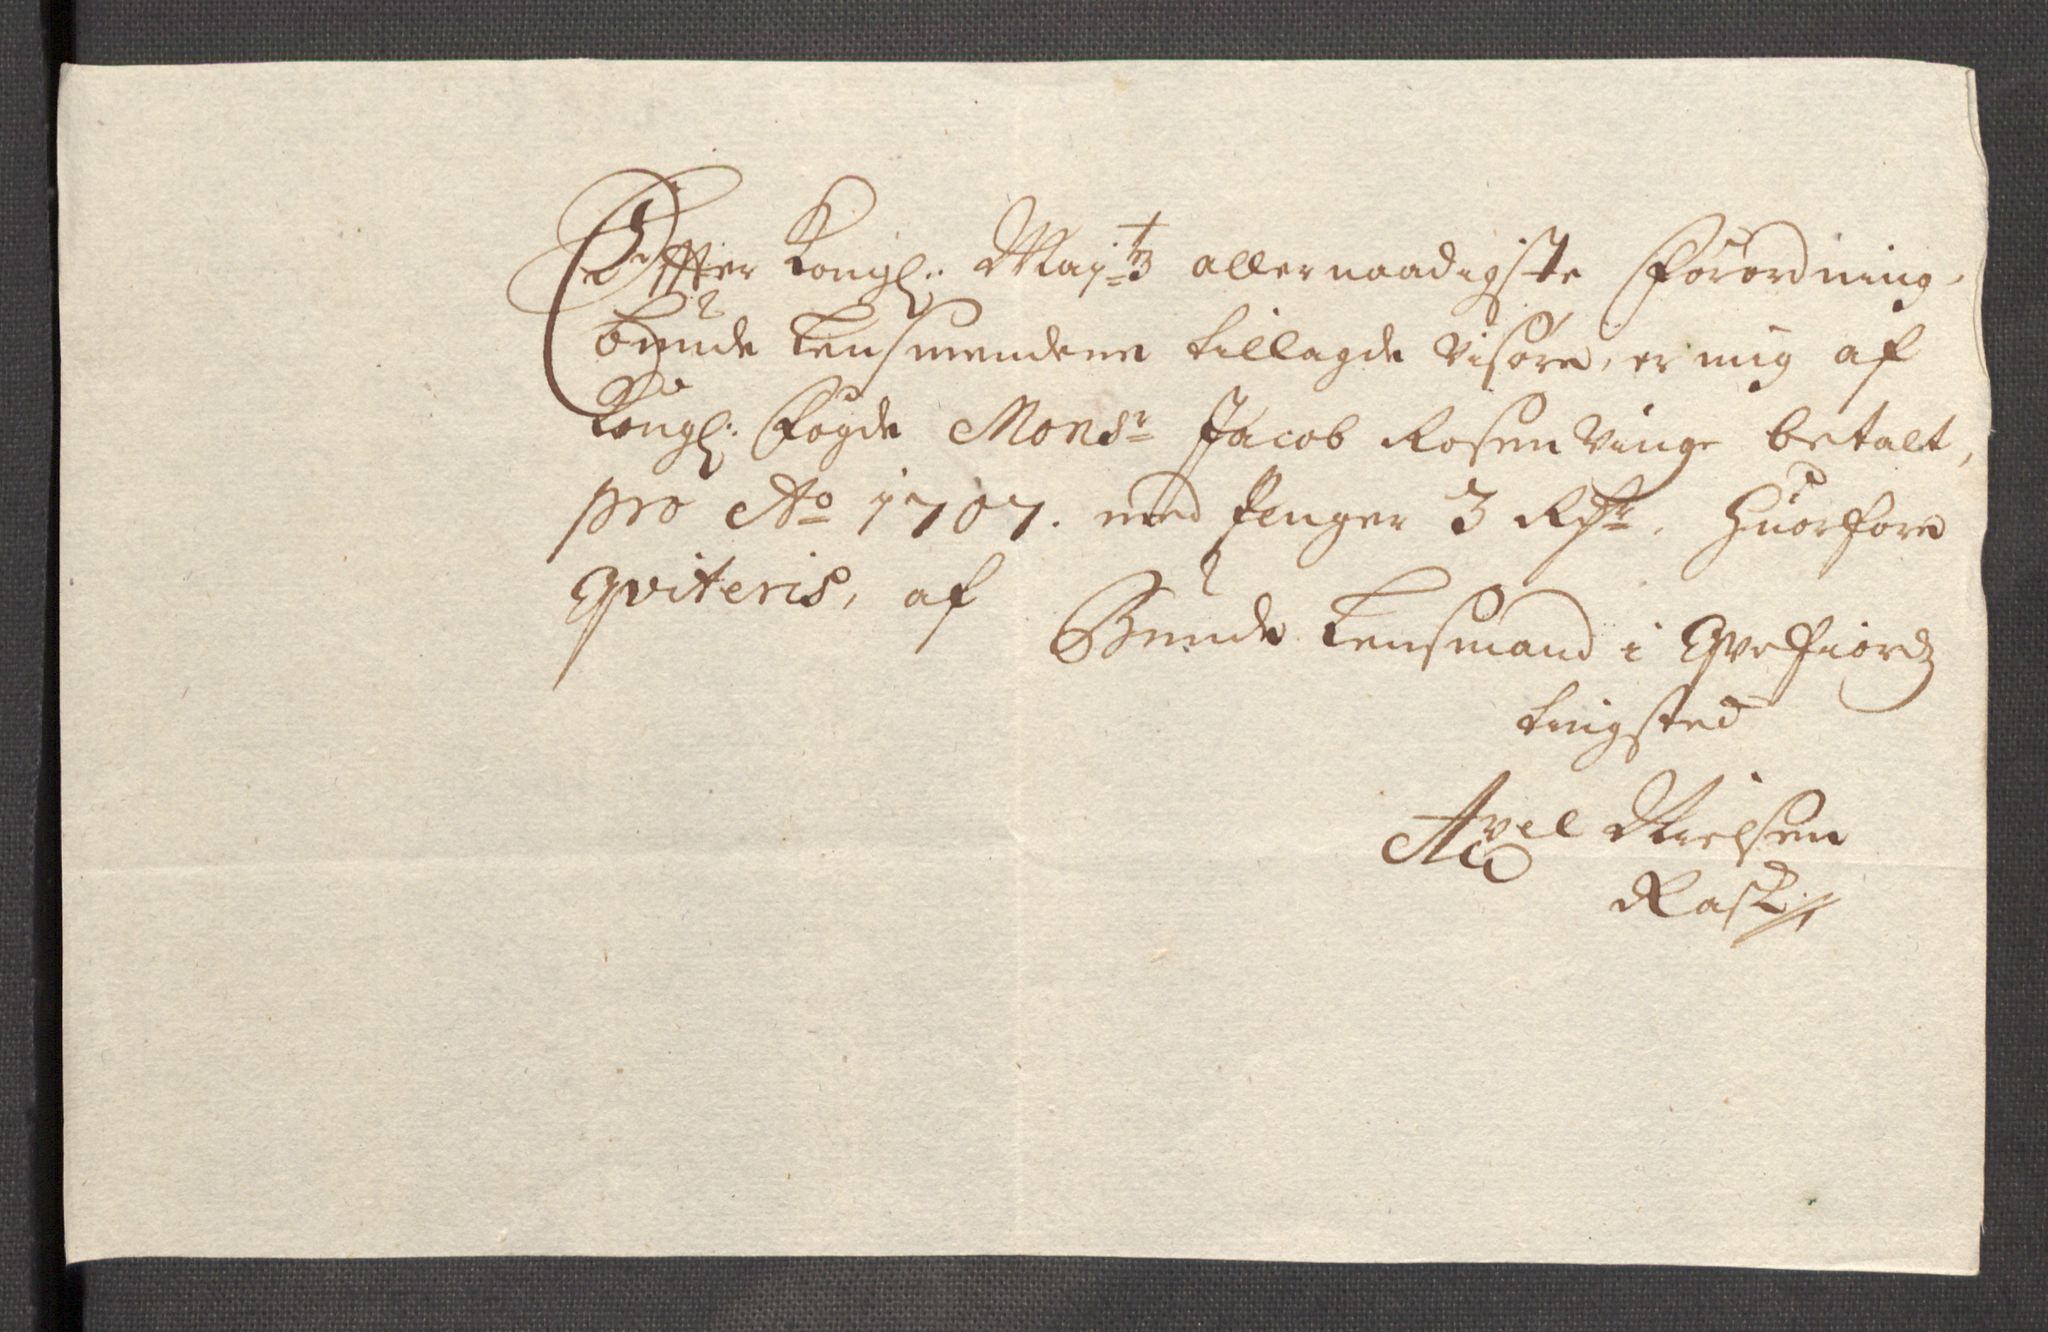 Effter Kongl: May:tz allernaadigste Forordning,
bunde Lensmendene tillagde Visøre, er mig af
Kongl: Fogde Monsr Jacob Rosenvinge betalt,
pro Ao 1707. med penger 3 Rdr. Huorfore
Qviteris, af
Bunde Lensmand i Qvefiordz
tingsted
Axel Nielsen
Rask